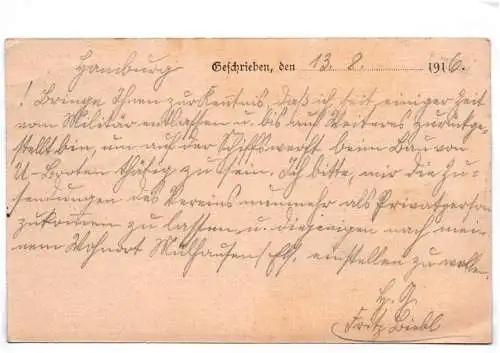 Hamburg Geschrieben, den 13. 8. 1916.
! Bringe Ihnen zur Kentnis, daß ich, seit einiger Zeit
vom Militär entlassen u. bis auf Weiteres zurückge-
stellt bin, um auf der Schiffswerft beim Bau von
U-Booten thätig zu sein. Ich bitte, mir die Zu-
sendungen des Vereins nunmehr als Privatperson
zukommen zu lassen, u. diejenigen nach mei-
nem Wohnort Mülhausen/Els. einstellen zu wollen.
Fritz Biebl